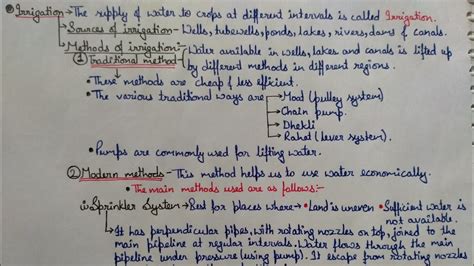 Irrigation → The supply of water to crops at different intervals is called Irrigation.
→ Sources of irrigation - Wells, tubewells, ponds, lakes, rivers, dams & canals.
→ Methods of irrigation:- Water available in wells, lakes and canals is lifted up
① Traditional method - by different methods in different regions.
• These methods are cheap & less efficient.
• The various traditional ways are → Moat (pulley system)
→ Chain pump.
→ Dhekli
→ Rahat (lever system).
• Pumps are commonly used for lifting water.
② Modern methods - This method helps us to use water economically.
• The main methods used are as follows:-
i) Sprinkler System → Best for places where → • Land is uneven • Sufficient water is
not available.
→ It has perpendicular pipes, with rotating nozzles on top, joined to
the main pipeline at regular intervals. Water flows through the main
pipeline under pressure (using pump). It escape from rotating nozzles